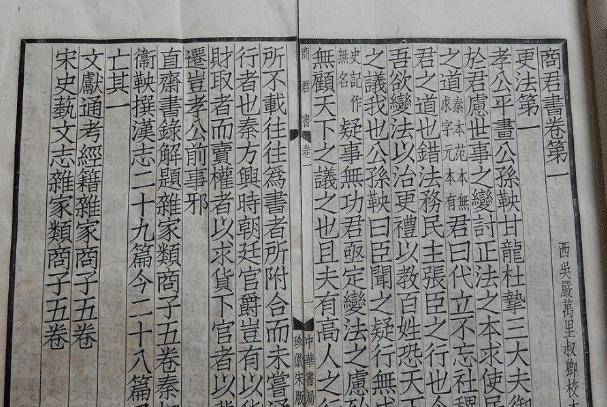 商君書卷第一
西吳嚴萬里叔卿校本
更法第一
孝公平畫公孫鞅甘龍杜摯三大夫御
於君慮世事之變討正法之本求使民
之道秦本范本無求字元本有君曰代立不忘社稷
君之道也錯法務民主張臣之行也今
吾欲變法以治更禮以教百姓恐天下
之議我也公孫鞅曰臣聞之疑行無成
史記作無名疑事無功君亟定變法之慮殆
無顧天下之議之也且夫有高人之行
商君書 卷一
中華書局
珍倣宋版
所不載往往為書者所附合而未嘗通
行者也秦方興時朝廷官爵豈有以貨
財取者而賣權者以求貨下官者以冀
遷豈孝公前事邪
直齋書錄解題雜家類商子五卷秦相
衞鞅撰漢志二十九篇今二十八篇又
亡其一
文獻通考經籍雜家商子五卷
宋史藝文志雜家類商子五卷